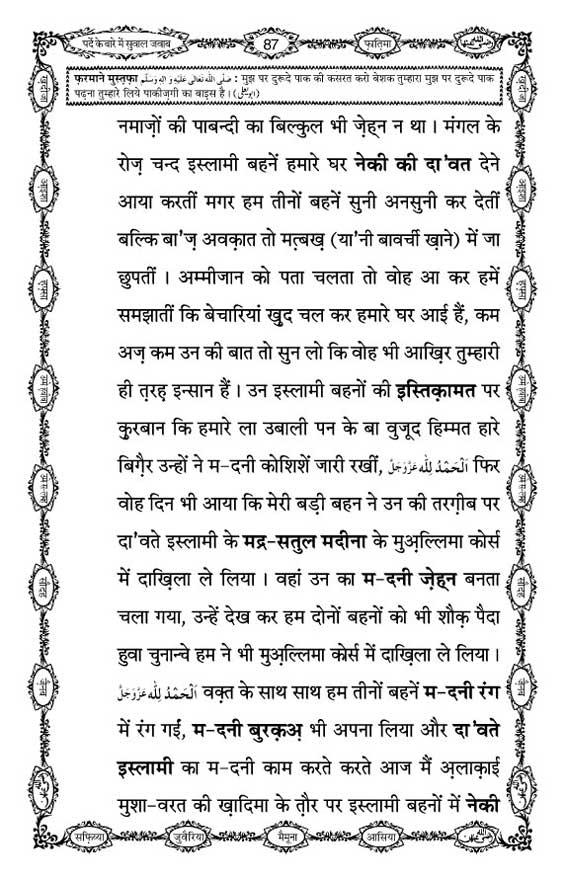 पर्दे के बारे में सुवाल जवाब
87
फ़ातिमा
फ़रमाने मुस्त़फ़ा صلى الله تعالى عليه و اله وسلم : मुझ पर दुरूदे पाक की कसरत करो बेशक तुम्हारा मुझ पर दुरूदे पाक
पढ़ना तुम्हारे लिये पाकीज़गी का बाइस है। (ابو يعلى)
नमाज़ों की पाबन्दी का बिल्कुल भी ज़ेह्न न था। मंगल के
रोज़ चन्द इस्लामी बहनें हमारे घर नेकी की दा'वत देने
आया करतीं मगर हम तीनों बहनें सुनी अनसुनी कर देतीं
बल्कि बा'ज़ अवक़ात तो मत़्बख़ (या'नी बावर्ची ख़ाने) में जा
छुपतीं । अम्मीजान को पता चलता तो वोह आ कर हमें
समझातीं कि बेचारियां ख़ुद चल कर हमारे घर आई हैं, कम
अज़ कम उन की बात तो सुन लो कि वोह भी आख़िर तुम्हारी
ही त़रह़ इन्सान हैं। उन इस्लामी बहनों की इस्तिक़ामत पर
क़ुरबान कि हमारे ला उबाली पन के बा वुजूद हिम्मत हारे
बिग़ैर उन्हों ने म-दनी कोशिशें जारी रखीं, اَلْحَمْدُ لِلّٰه عَزَّوَجَلَّ फिर
वोह दिन भी आया कि मेरी बड़ी बहन ने उन की तरग़ीब पर
दा'वते इस्लामी के मद्र-सतुल मदीना के मुअ़ल्लिमा कोर्स
में दाख़िला ले लिया। वहां उन का म-दनी ज़ेह्न बनता
चला गया, उन्हें देख कर हम दोनों बहनों को भी शौक़ पैदा
हुवा चुनान्चे हम ने भी मुअ़ल्लिमा कोर्स में दाख़िला ले लिया।
اَلْحَمْدُ لِلّٰه عَزَّوَجَلَّ वक़्त के साथ साथ हम तीनों बहनें म-दनी रंग
में रंग गईं, म-दनी बुरक़अ़ भी अपना लिया और दा'वते
इस्लामी का म-दनी काम करते करते आज मैं अ़लाक़ाई
मुशा-वरत की ख़ादिमा के त़ौर पर इस्लामी बहनों में नेकी
सफ़िय्या
जुवैरिया
मैमूना
आसिया